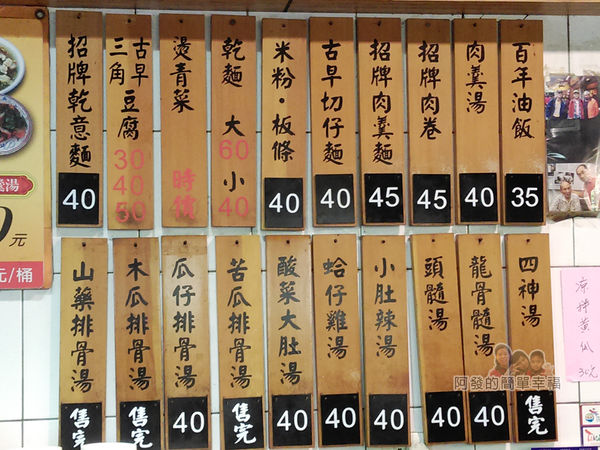 百年油飯 35
肉羹湯 40
招牌肉卷 45
招牌肉羹麵 45
古早切仔麵 40
米粉・板條 40
乾麵 大 60 小 40
燙青菜 時價
古早三角豆腐 30 40 50
招牌乾意麵 40
四神湯 售完
龍骨髓湯 40
頭髓湯 40
小肚辣湯 40
蛤仔雞湯 40
酸菜大肚湯 40
苦瓜排骨湯 售完
瓜仔排骨湯 40
木瓜排骨湯 售完
山藥排骨湯 售完
涼拌黃瓜 30元
元
元/桶
阿發的簡單幸福